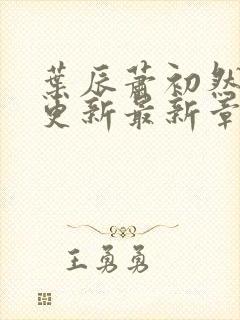 葉辰蕭初然
更新最新章
王勇勇